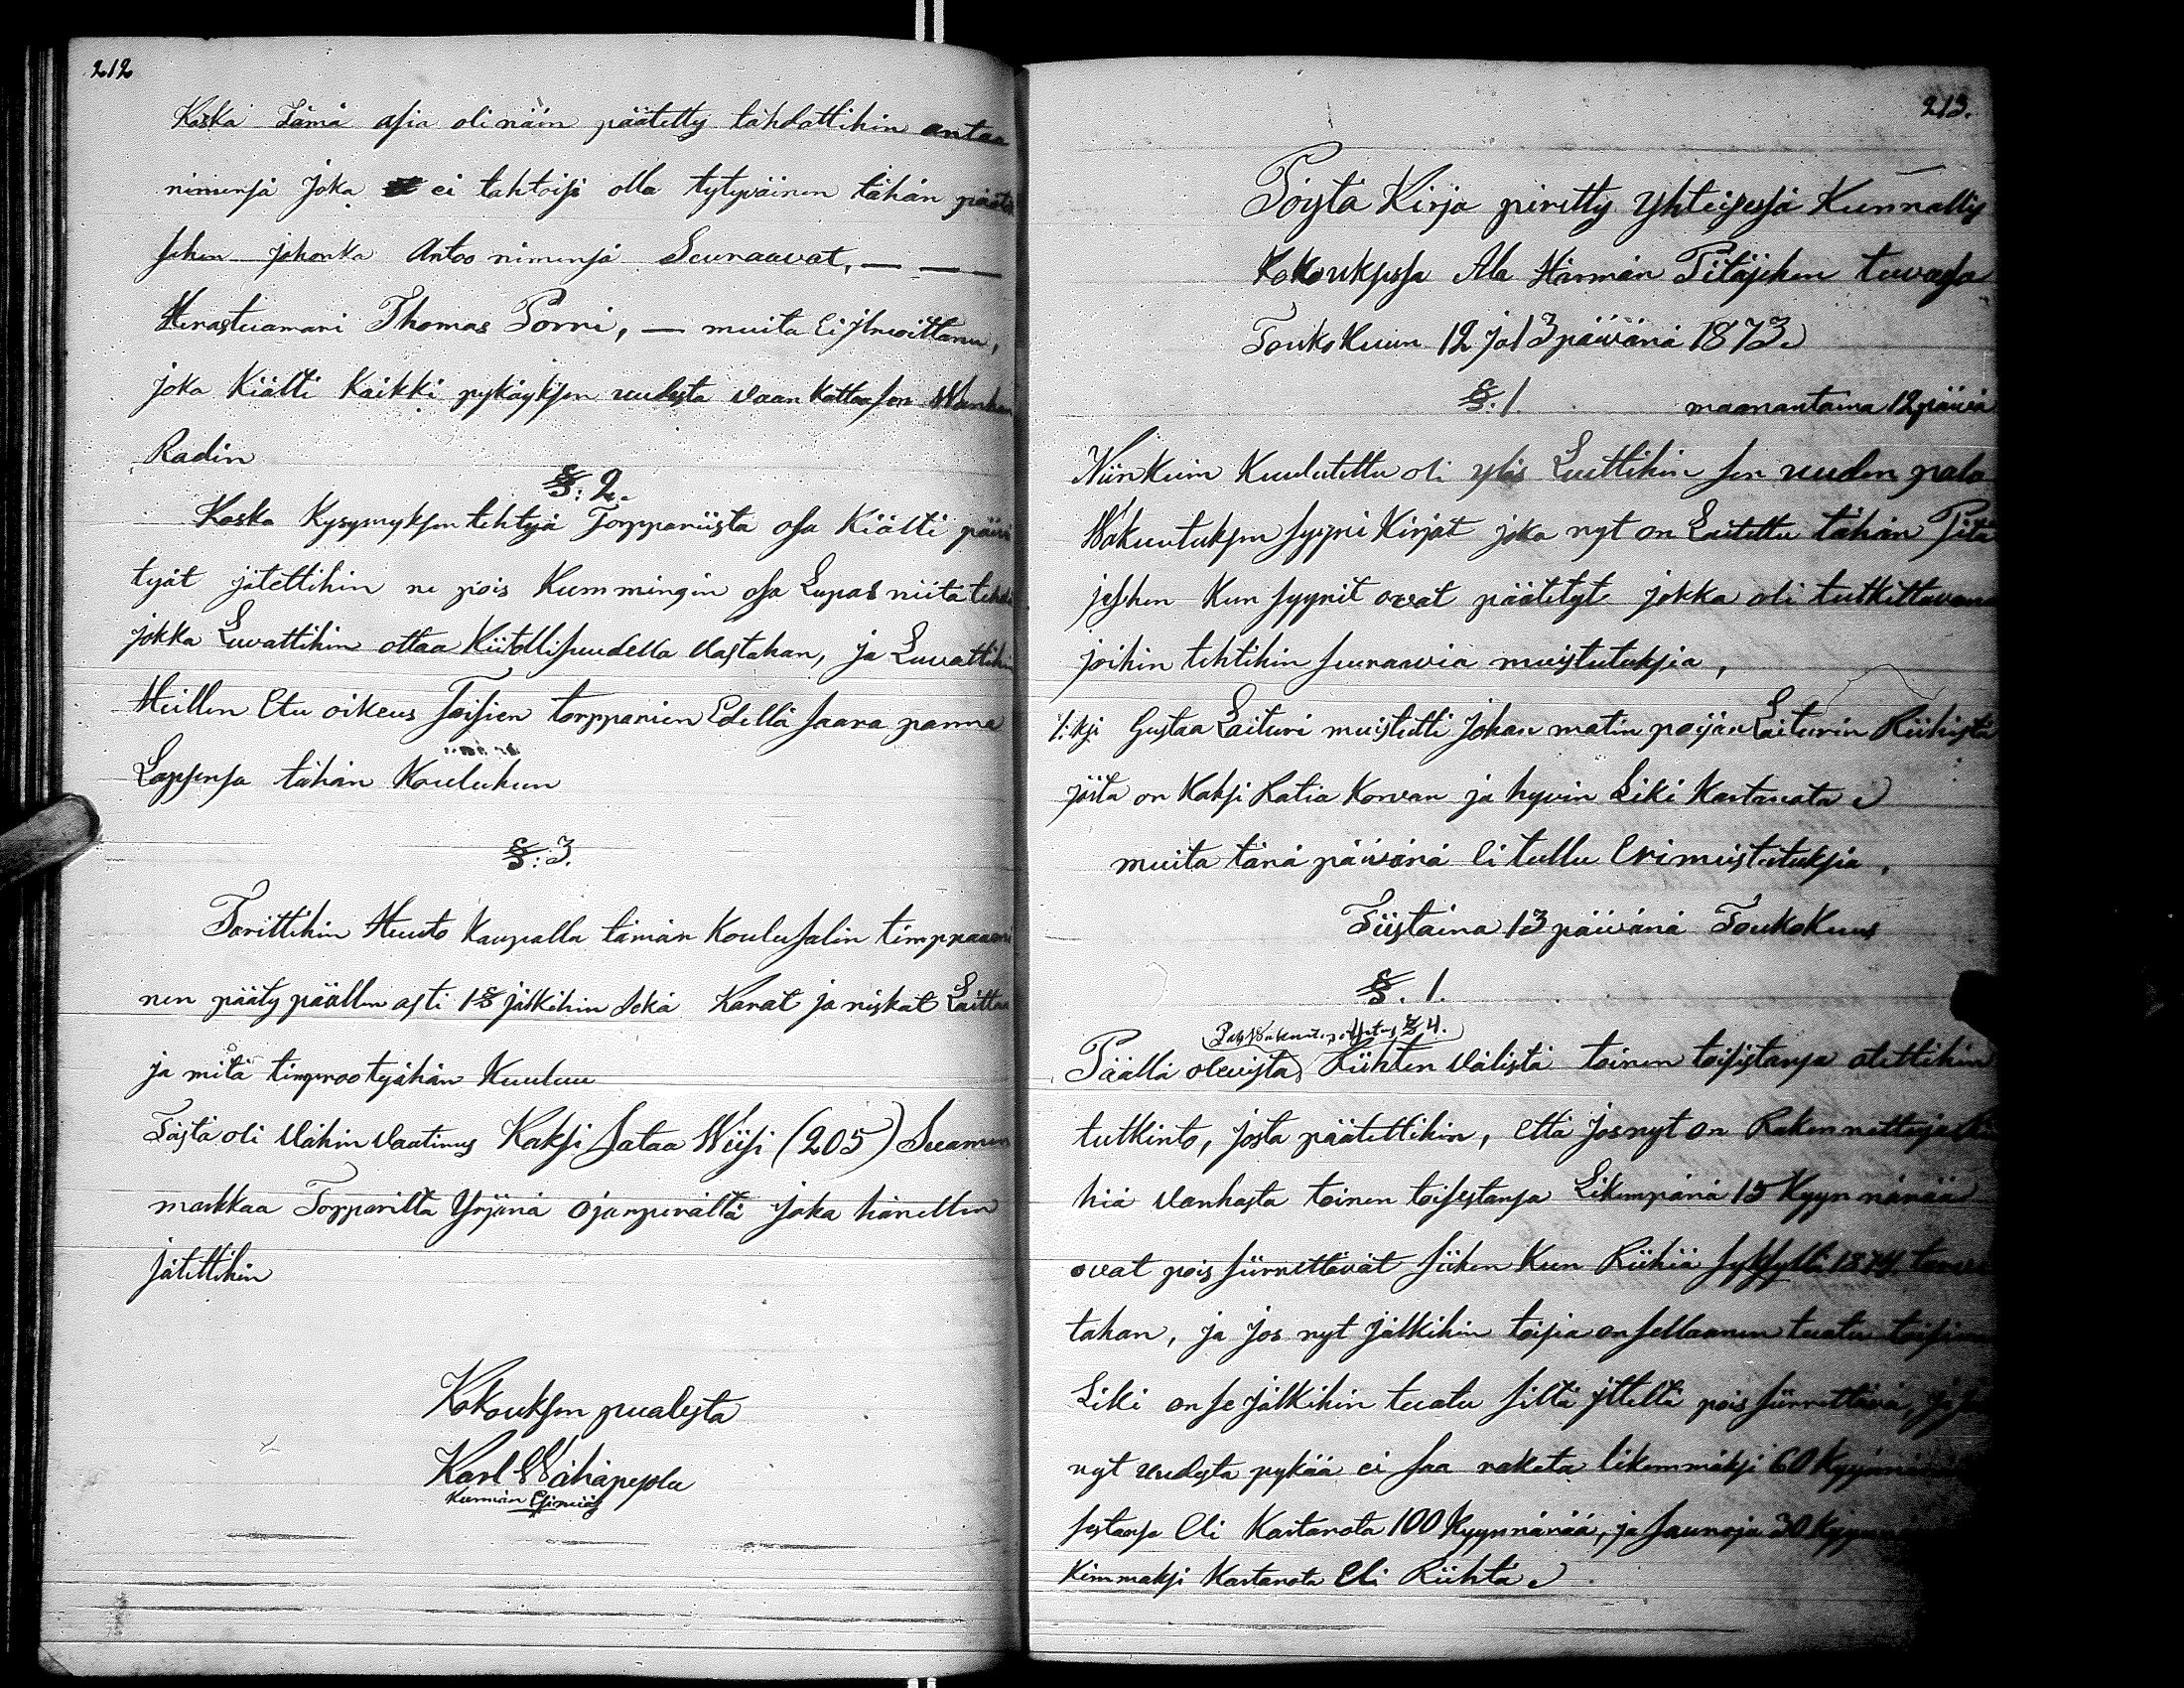 212
Koska Tämä asia oli näin päätetty tähdottihin antaa
nimensä joka ei tahtoisi olla tytyväinen tähän päätö
sehen johonka Antoo nimensä Seuraavat, — — —
Herastuamari Thomas Porri, — muita Ei jlmoittanu,
joka Kiälti Kaikki pykäyksen uudesta vaan kattoa sen Wanhan
Radin
§: 2.
Koska Kysymyksen tehtyä Torppariista osa Kiälti päivä
tyät jätettihin ne pois Kummingin osa Lupas niitä tehdä
jokka Luvattihin ottaa Kiitollisuudella Vastahan, ja Luvattihin
Heillen Etu oikeus Toisien torpparien Edellä saara panna
Lapsensa tähän Kouluhun
§: 3.
Tarittihin Huuto kaupalla tämän Koulusalin timppaami
nen pääty päällen asti 1§ jälkihin Sekä Karat ja niskat Laittaa
ja mitä timproo tyähän Kuuluu
Tästä oli Vähin Vaatimus Kaksi Sataa Wiisi (205) Suamen
markkaa Torpparilta Yrjänä Ojanperältä joka hänellen
jätettihin
Kokouksen puolesta
Karl Wähäpesola
Kunnan Esimiäs
213.
Pöytä Kirja piretty Yhteisesä Kunnallis
Kokouksesa Ala Härmän Pitäjehen tuvassa
ToukoKuun 12 ja 13 päivänä 1873
§. 1. maanantaina 12 päivä
NiinKuin Kuulutettu oli ylös Luettihin sen uuden palo
Wakuutuksen syyni Kirjat joka nyt on Laitettu tähän Pitä
jeshen Kun syynit ovat päätetyt jokka oli tutkittavana
joihin tehtihin seuraavia muistutuksia,
1:ksi Gustaa Laituri muistutti Johan matin poijan Laiturin Riihistä
jästä on Kaksi Ratia Korvan ja hyvin Liki Kartanata
muita tänä päivänä Ei tullu Eri muistutuksia.
Tiistaina 13 päivänä ToukoKuus
§. 1.
Palo Wakuutus §4.
Päällä olevista Riihten Välistä toinen toisistansa otettihin
tutkinto, josta päätettihin, Että jos nyt on Rakennettuja rii
hiä Vanhasta toinen toisestansa Likempänä 15 Kyynnärää
ovat pois siirrettävät siihen Kun Riihiä syksyllä 1874 tarvi
tahan, ja jos nyt jälkihin toisia on sellaanen tuatu toisien
Liki on se jälkihin tuatu siltä itteltä pois siirrettävä,
nyt uudesta pykää ei saa raketa likemmäksi 60 Kyynärää
sestansa Eli Kartanota 100 Kyynnärää, ja saunoja 30 Kyynärää
Kimmaksi Kartanota Eli Riihtä